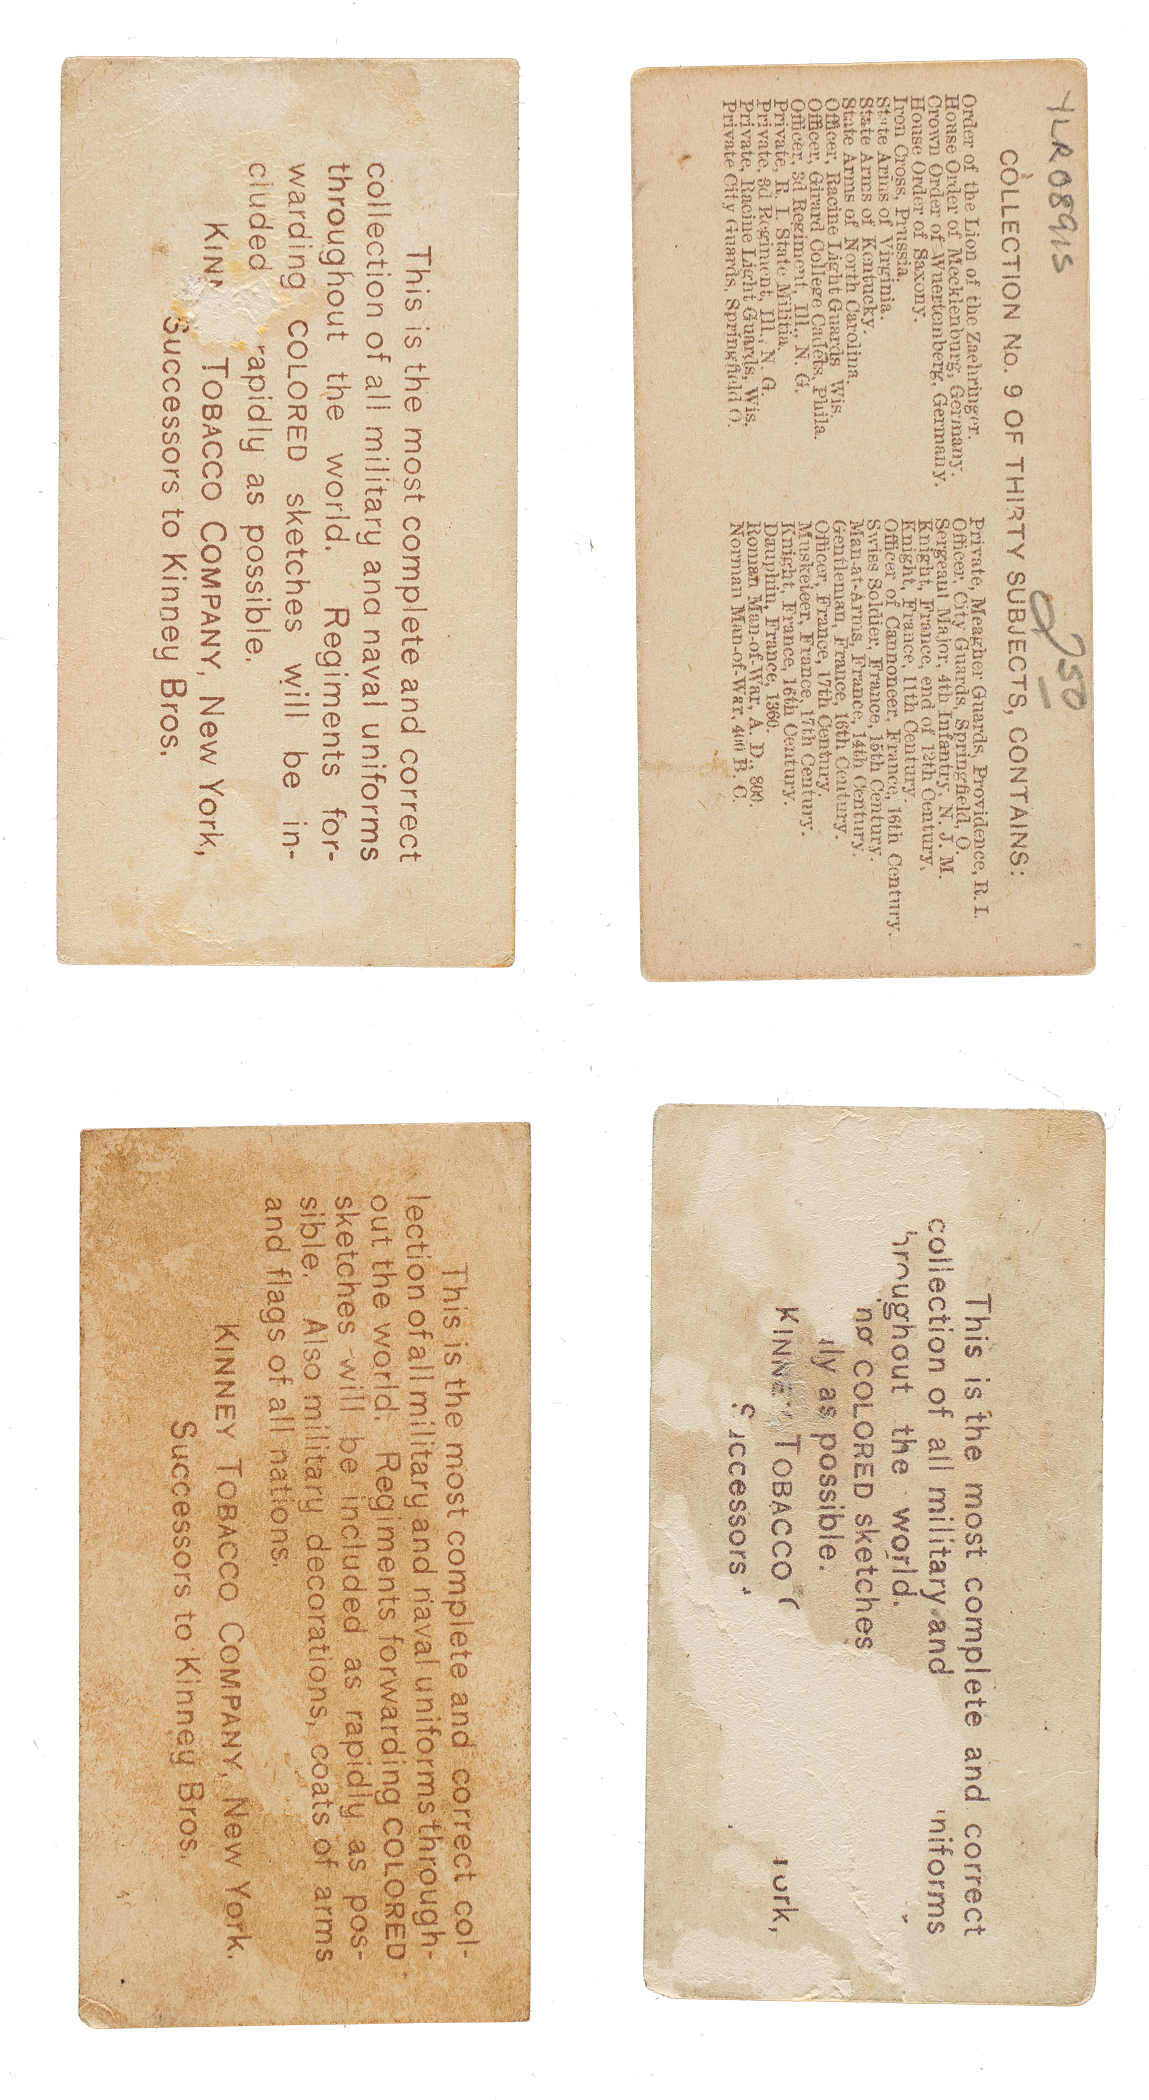 This is the most complete and correct
collection of all military and naval uniforms
throughout the world. Regiments for-
warding COLORED sketches will be in-
cluded rapidly as possible.
KINN TOBACCO COMPANY, New York,
Successors to Kinney Bros.
COLLECTION No. 9 OF THIRTY SUBJECTS, CONTAINS:
Order of the Lion of the Zaehringer.
House Order of Mecklenburg, Germany.
Crown Order of Wuertemberg, Germany.
House Order of Saxony.
Iron Cross, Prussia.
State Arms of Virginia.
State Arms of Kentucky.
State Arms of North Carolina.
Officer, Racine Light Guards Wis.
Officer, Girard College Cadets, Phila.
Officer, 3d Regiment, Ill., N. G.
Private, R. I. State Militia.
Private, 3d Regiment, Ill., N. G.
Private, Racine Light Guards, Wis.
Private City Guards, Springfield O.
Private, Meagher Guards, Providence, R. I.
Officer, City Guards, Springfield, O.
Sergeant Major, 4th Infantry, N. J. M.
Knight, France, end of 12th Century.
Knight, France, 11th Century.
Officer of Cannoneer, France, 16th Century.
Swiss Soldier, France, 15th Century.
Man-at-Arms, France, 14th Century.
Gentleman, France, 16th Century.
Officer, France, 17th Century.
Musketeer, France, 17th Century.
Knight, France, 16th Century.
Dauphin, France, 1360.
Roman Man-of-War, A. D., 800.
Norman Man-of-War, 400 B. C.
This is the most complete and correct col-
lection of all military and naval uniforms through-
out the world. Regiments forwarding COLORED
sketches will be included as rapidly as pos-
sible. Also military decorations, coats of arms
and flags of all nations.
KINNEY TOBACCO COMPANY, New York.
Successors to Kinney Bros.
This is the most complete and correct
collection of all military and niforms
hroughout the world.
ng COLORED sketches
ly as possible.
KINNE TOBACCO ork,
ccessors